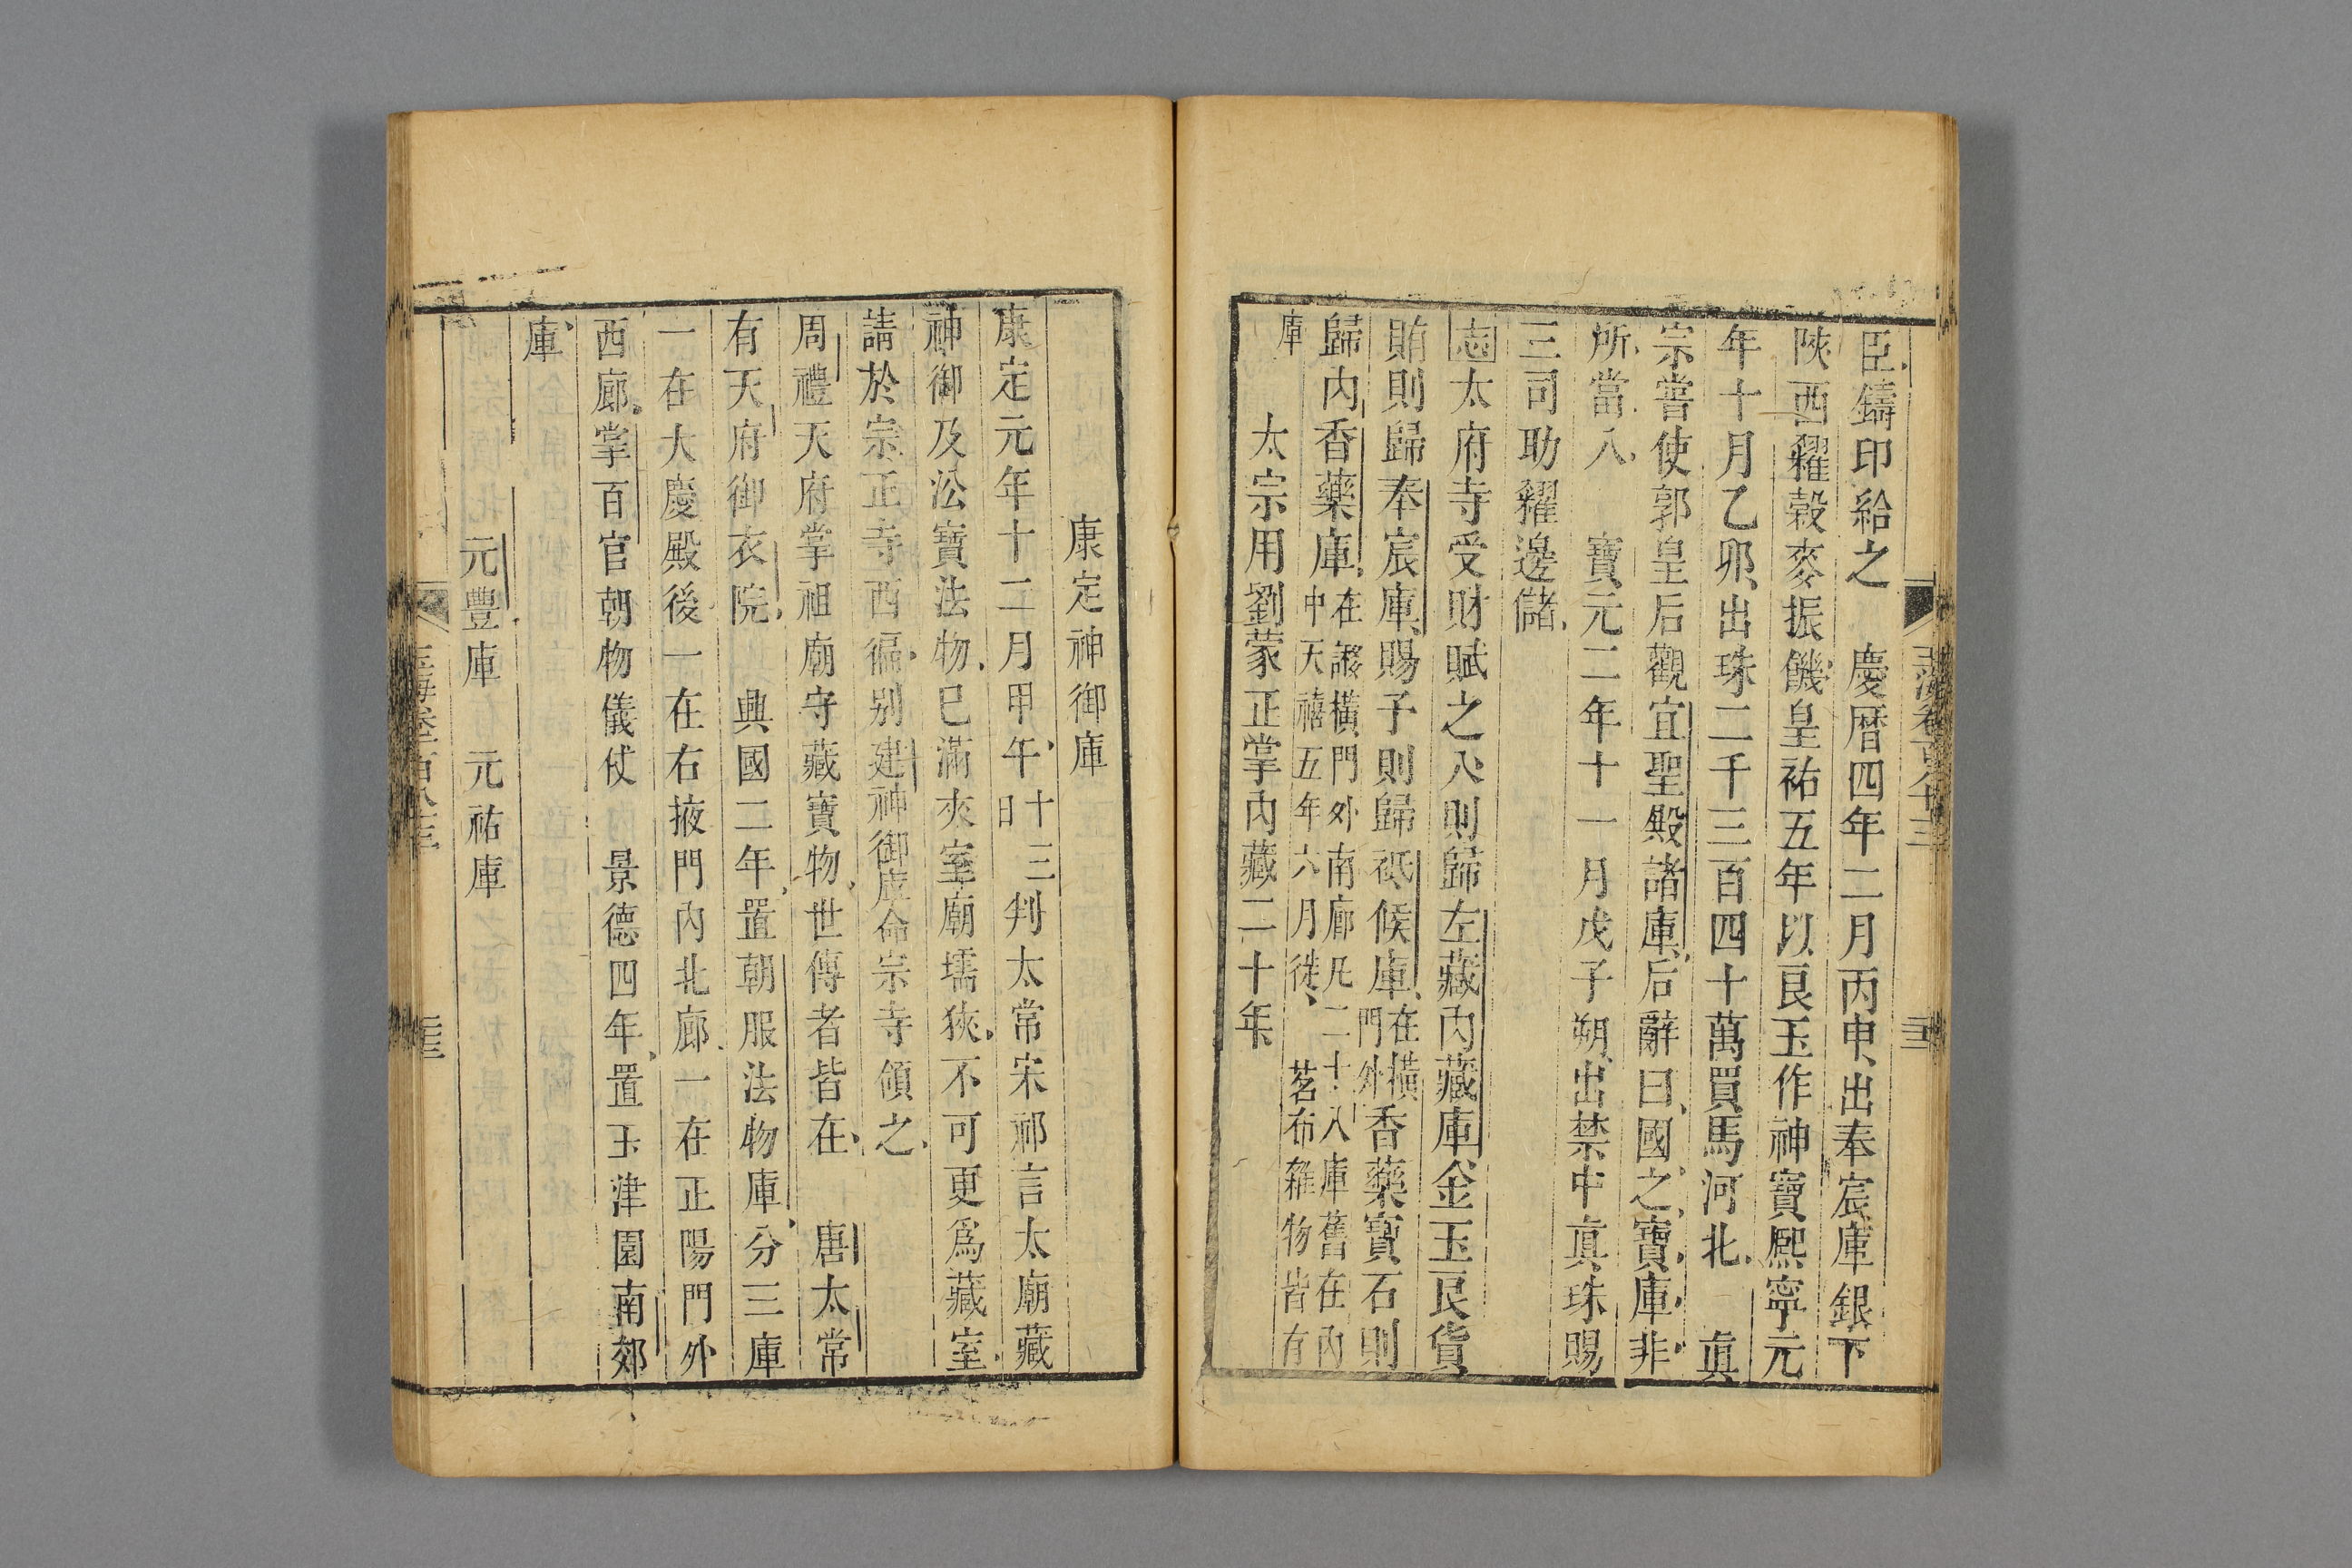 臣鑄印給之　慶曆四年二月丙申出奉宸庫銀下
陝西糴穀麥振饑皇祐五年以良玉作神寶熙寧元
年十月乙卯出珠二千三百四十萬買馬河北　眞
宗嘗使郭皇后觀宜聖殿諸庫后辭曰國之寶庫非
所當入　寶元二年十一月戊子朔出禁中眞珠賜
三司助糴邊儲
志太府寺受財賦之入則歸左藏內藏庫金玉良貨
賄則歸奉宸庫賜予則歸祗候庫在橫門外香藥寶石則
歸內香藥庫在謻橫門外南廊凡二十八庫舊在內中天禧五年六月徙　茗布雜物皆有
庫
太宗用劉蒙正掌內藏二十年
玉海卷一百八十三
三十三
康定神御庫
康定元年十二月甲午十三日判太常宋祁言太廟藏
神御及沿寶法物已滿夾室廟壖狹不可更爲藏室
請於宗正寺西偏別建神御庫命宗寺領之
周禮天府掌祖廟守藏寶物世傳者皆在　唐太常
有天府御衣院　興國二年置朝服法物庫分三庫
一在大慶殿後一在右掖門內北廊一在正陽門外
西廊掌百官朝物儀仗　景德四年置玉津園南郊
庫
元豐庫　元祐庫
玉海卷一百八十三
三十三